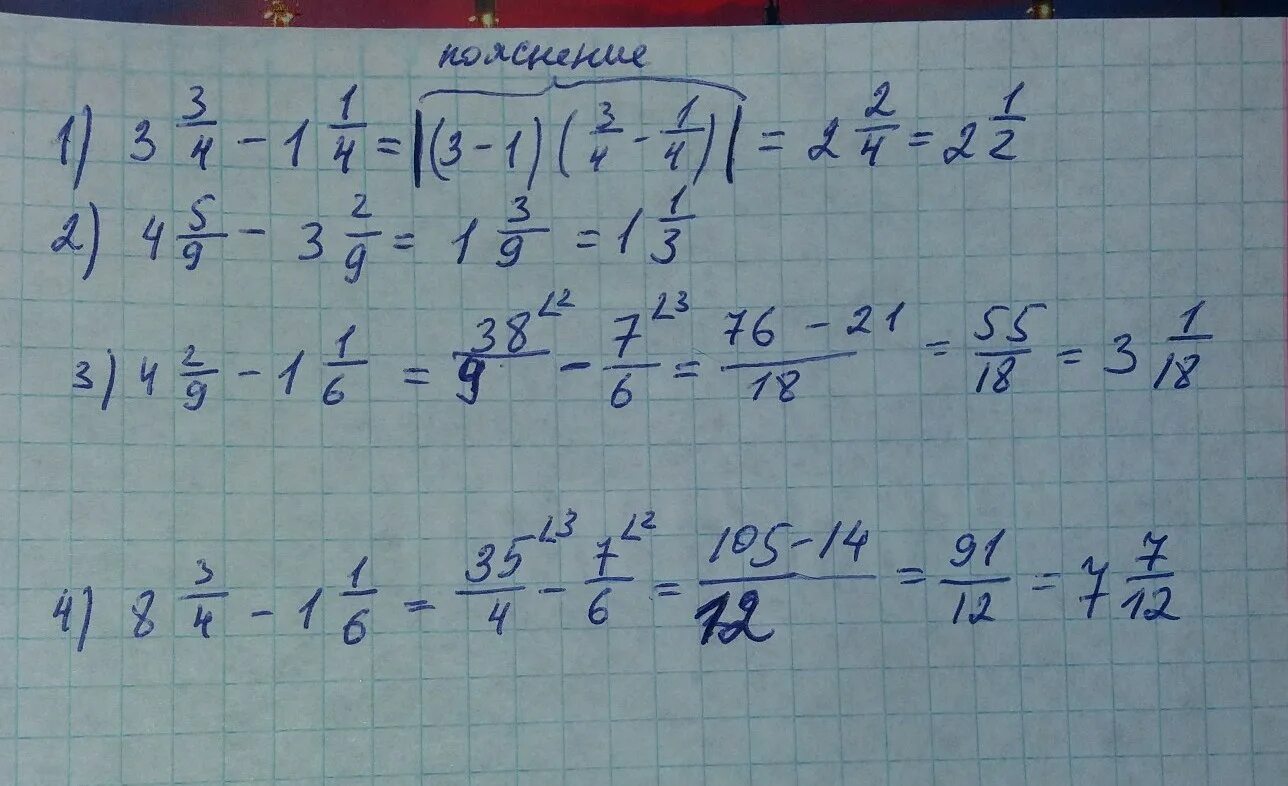 пояснение
1) 3 3/4 - 1 1/4 = |(3-1)(3/4 - 1/4)| = 2 2/4 = 2 1/2
2) 4 5/9 - 3 2/9 = 1 3/9 = 1 1/3
3) 4 2/9 - 1 1/6 = 38/9 ∠2 - 7/6 ∠3 = (76 - 21)/18 = 55/18 = 3 1/18
4) 8 3/4 - 1 1/6 = 35/4 ∠3 - 7/6 ∠2 = (105-14)/12 = 91/12 = 7 7/12